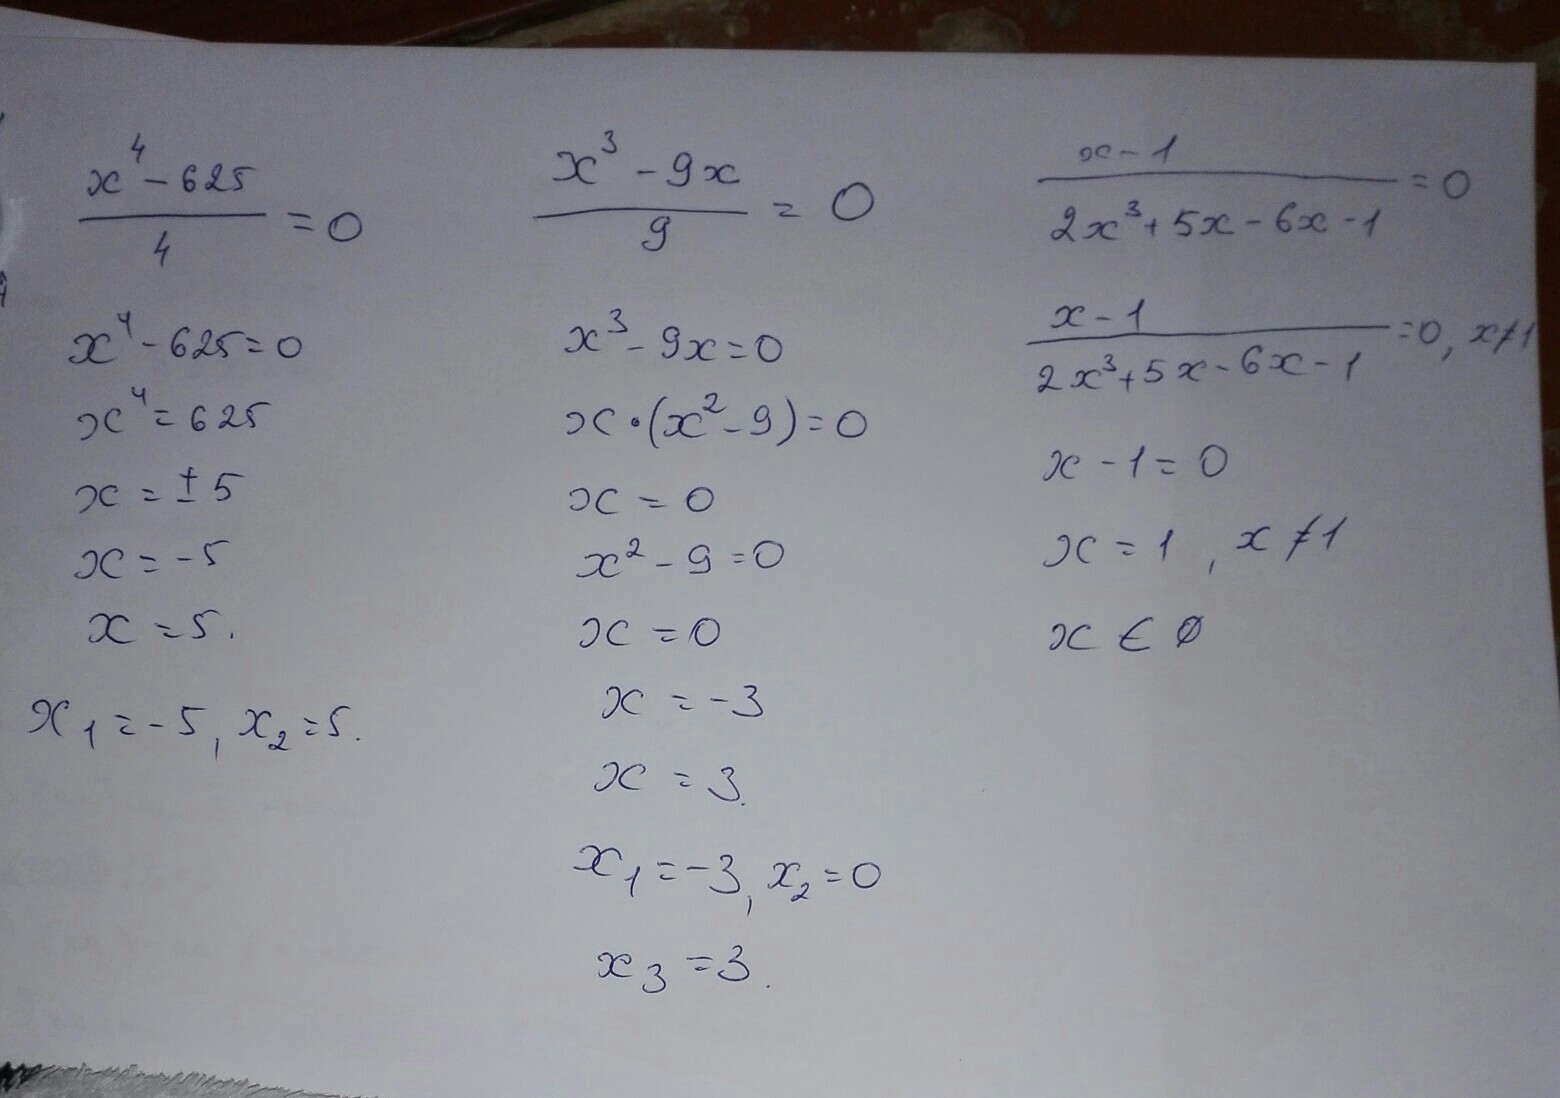 x⁴ - 625
4
= 0
x⁴ - 625 = 0
x⁴ = 625
x = ± 5
x = -5
x = 5.
x₁ = -5, x₂ = 5.
x³ - 9x
9
= 0
x³ - 9x = 0
x · (x² - 9) = 0
x = 0
x² - 9 = 0
x = 0
x = -3
x = 3.
x₁ = -3, x₂ = 0
x₃ = 3.
x - 1
2x³ + 5x - 6x - 1
= 0
x - 1
2x³ + 5x - 6x - 1
= 0, x ≠ 1
x - 1 = 0
x = 1, x ≠ 1
x ∈ ∅